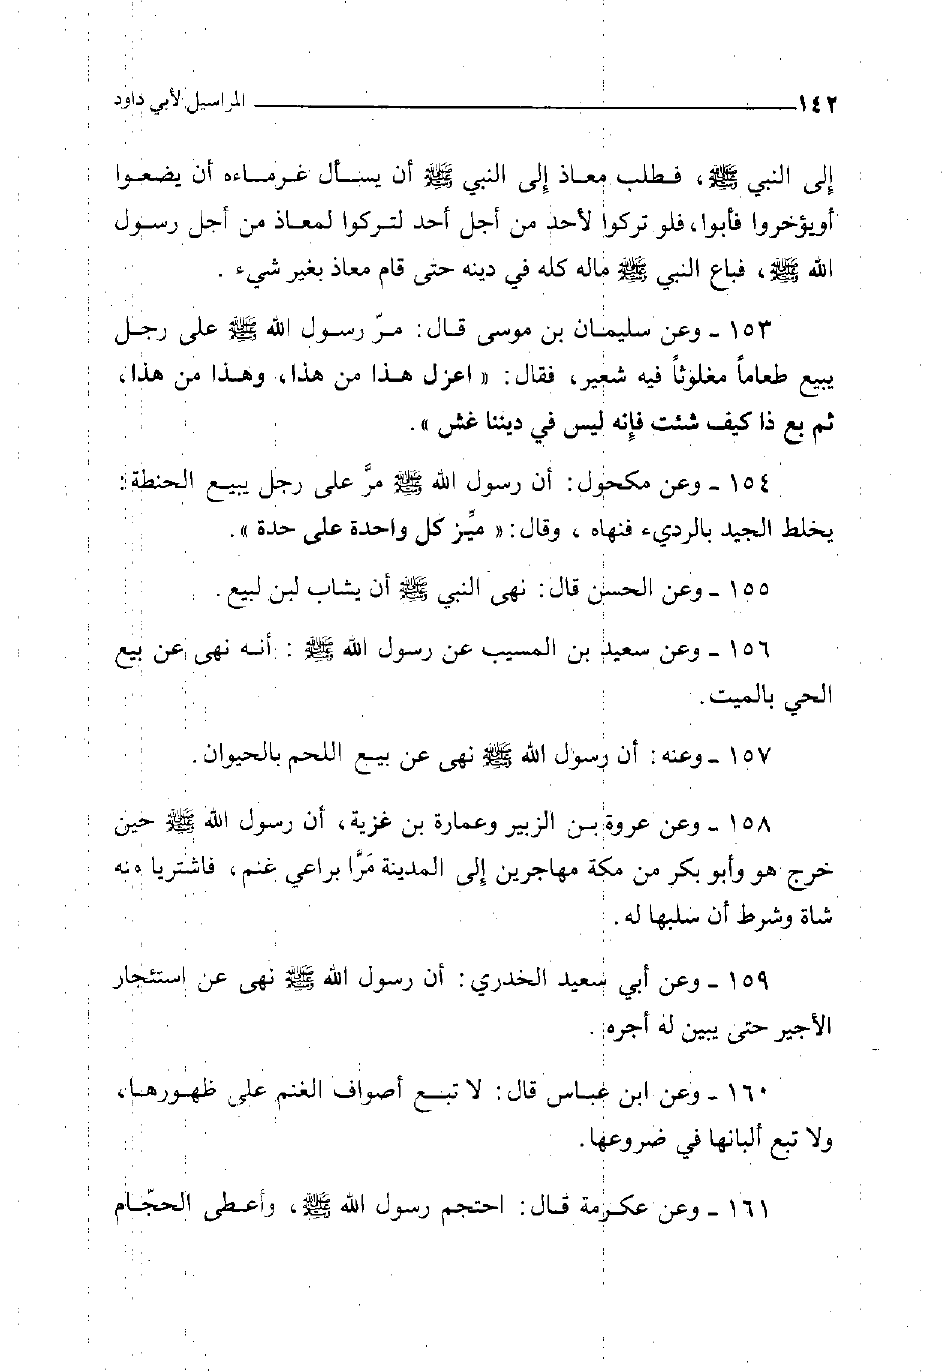 ١٤٢ المراسيل لأبي داود
إلى النبي ﷺ، فطلب معاذ إلى النبي ﷺ أن يسأل غرماءه أن يضعوا
أويؤخروا فأبوا، فلو تركوا لأحد من أجل أحد لتركوا لمعاذ من أجل رسول
الله ﷺ، فباع النبي ﷺ ماله كله في دينه حتى قام معاذ بغير شيء .
١٥٣ - وعن سليمان بن موسى قال: مرّ رسول الله ﷺ على رجل
يبيع طعاماً مغلوثاً فيه شعير، فقال: « اعزل هذا من هذا، وهذا من هذا،
ثم بع ذا كيف شئت فإنه ليس في ديننا غش ».
١٥٤ - وعن مكحول: أن رسول الله ﷺ مرَّ على رجل يبيع الحنطة:
يخلط الجيد بالرديء فنهاه ، وقال: « ميِّز كل واحدة على حدة ».
١٥٥ - وعن الحسن قال: نهى النبي ﷺ أن يشاب لبن لبيع .
١٥٦ - وعن سعيد بن المسيب عن رسول الله ﷺ : أنه نهى عن بيع
الحي بالميت.
١٥٧ - وعنه: أن رسول الله ﷺ نهى عن بيع اللحم بالحيوان .
١٥٨ - وعن عروة بن الزبير وعمارة بن غزية، أن رسول الله ﷺ حين
خرج هو وأبو بكر من مكة مهاجرين إلى المدينة مَرَّا براعي غنم، فاشتريا منه
شاة وشرط أن سلبها له .
١٥٩ - وعن أبي سعيد الخدري: أن رسول الله ﷺ نهى عن استئجار
الأجير حتى يبين له أجره .
١٦٠ - وعن ابن عباس قال: لا تبع أصواف الغنم على ظهورها،
ولا تبع ألبانها في ضروعها.
١٦١ - وعن عكرمة قال: احتجم رسول الله ﷺ، وأعطى الحجّام